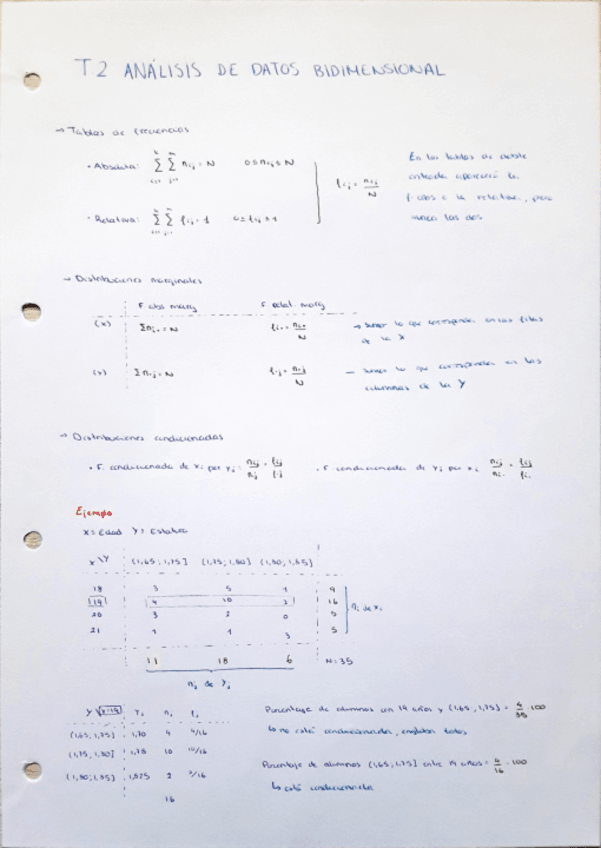 T2 ANÁLISIS DE DATOS BIDIMENSIONAL
→ Tablas de frecuencias
· Absoluta: Σ Σ nij = N    0 ≤ nij ≤ N
fij = nij/N
· Relativa: Σ Σ fij = 1    0 ≤ fij ≤ 1
En las tablas de doble
entrada aparecerá la
f. abs o la relativa, pero
nunca las dos
→ Distribuciones marginales
F abs marg    F relat. marg
(X)    Σni. = N    fi. = ni./N    → sumar lo que corresponda en las filas
de la X
(Y)    Σn.j = N    f.j = n.j/N    → sumar lo que corresponda en las
columnas de la Y
→ Distribuciones condicionadas
· F. condicionada de xi por yj: nij/n.j = fij/f.j    · F condicionada de yj por xi nij/ni. = fij/fi.
Ejemplo
X = Edad  Y = Estatura
X\Y    (1,65; 1,75]    (1,75; 1,80]    (1,80; 1,85)
18    3    5    1    9
19    4    10    2    16
20    3    2    0    5
21    1    1    3    5
ni de xi
11    18    6    N = 35
nj de yj
Y    x=19    Yi    ni    fi
(1,65; 1,75]    1,70    4    4/16
(1,75; 1,80]    1,78    10    10/16
(1,80; 1,85)    1,825    2    2/16
16
Porcentaje de alumnos con 19 años y (1,65; 1,75] = 4/35 · 100
↳ no está condicionada, engloba todos
Porcentaje de alumnos (1,65; 1,75] entre 19 años = 4/16 · 100
↳ está condicionada